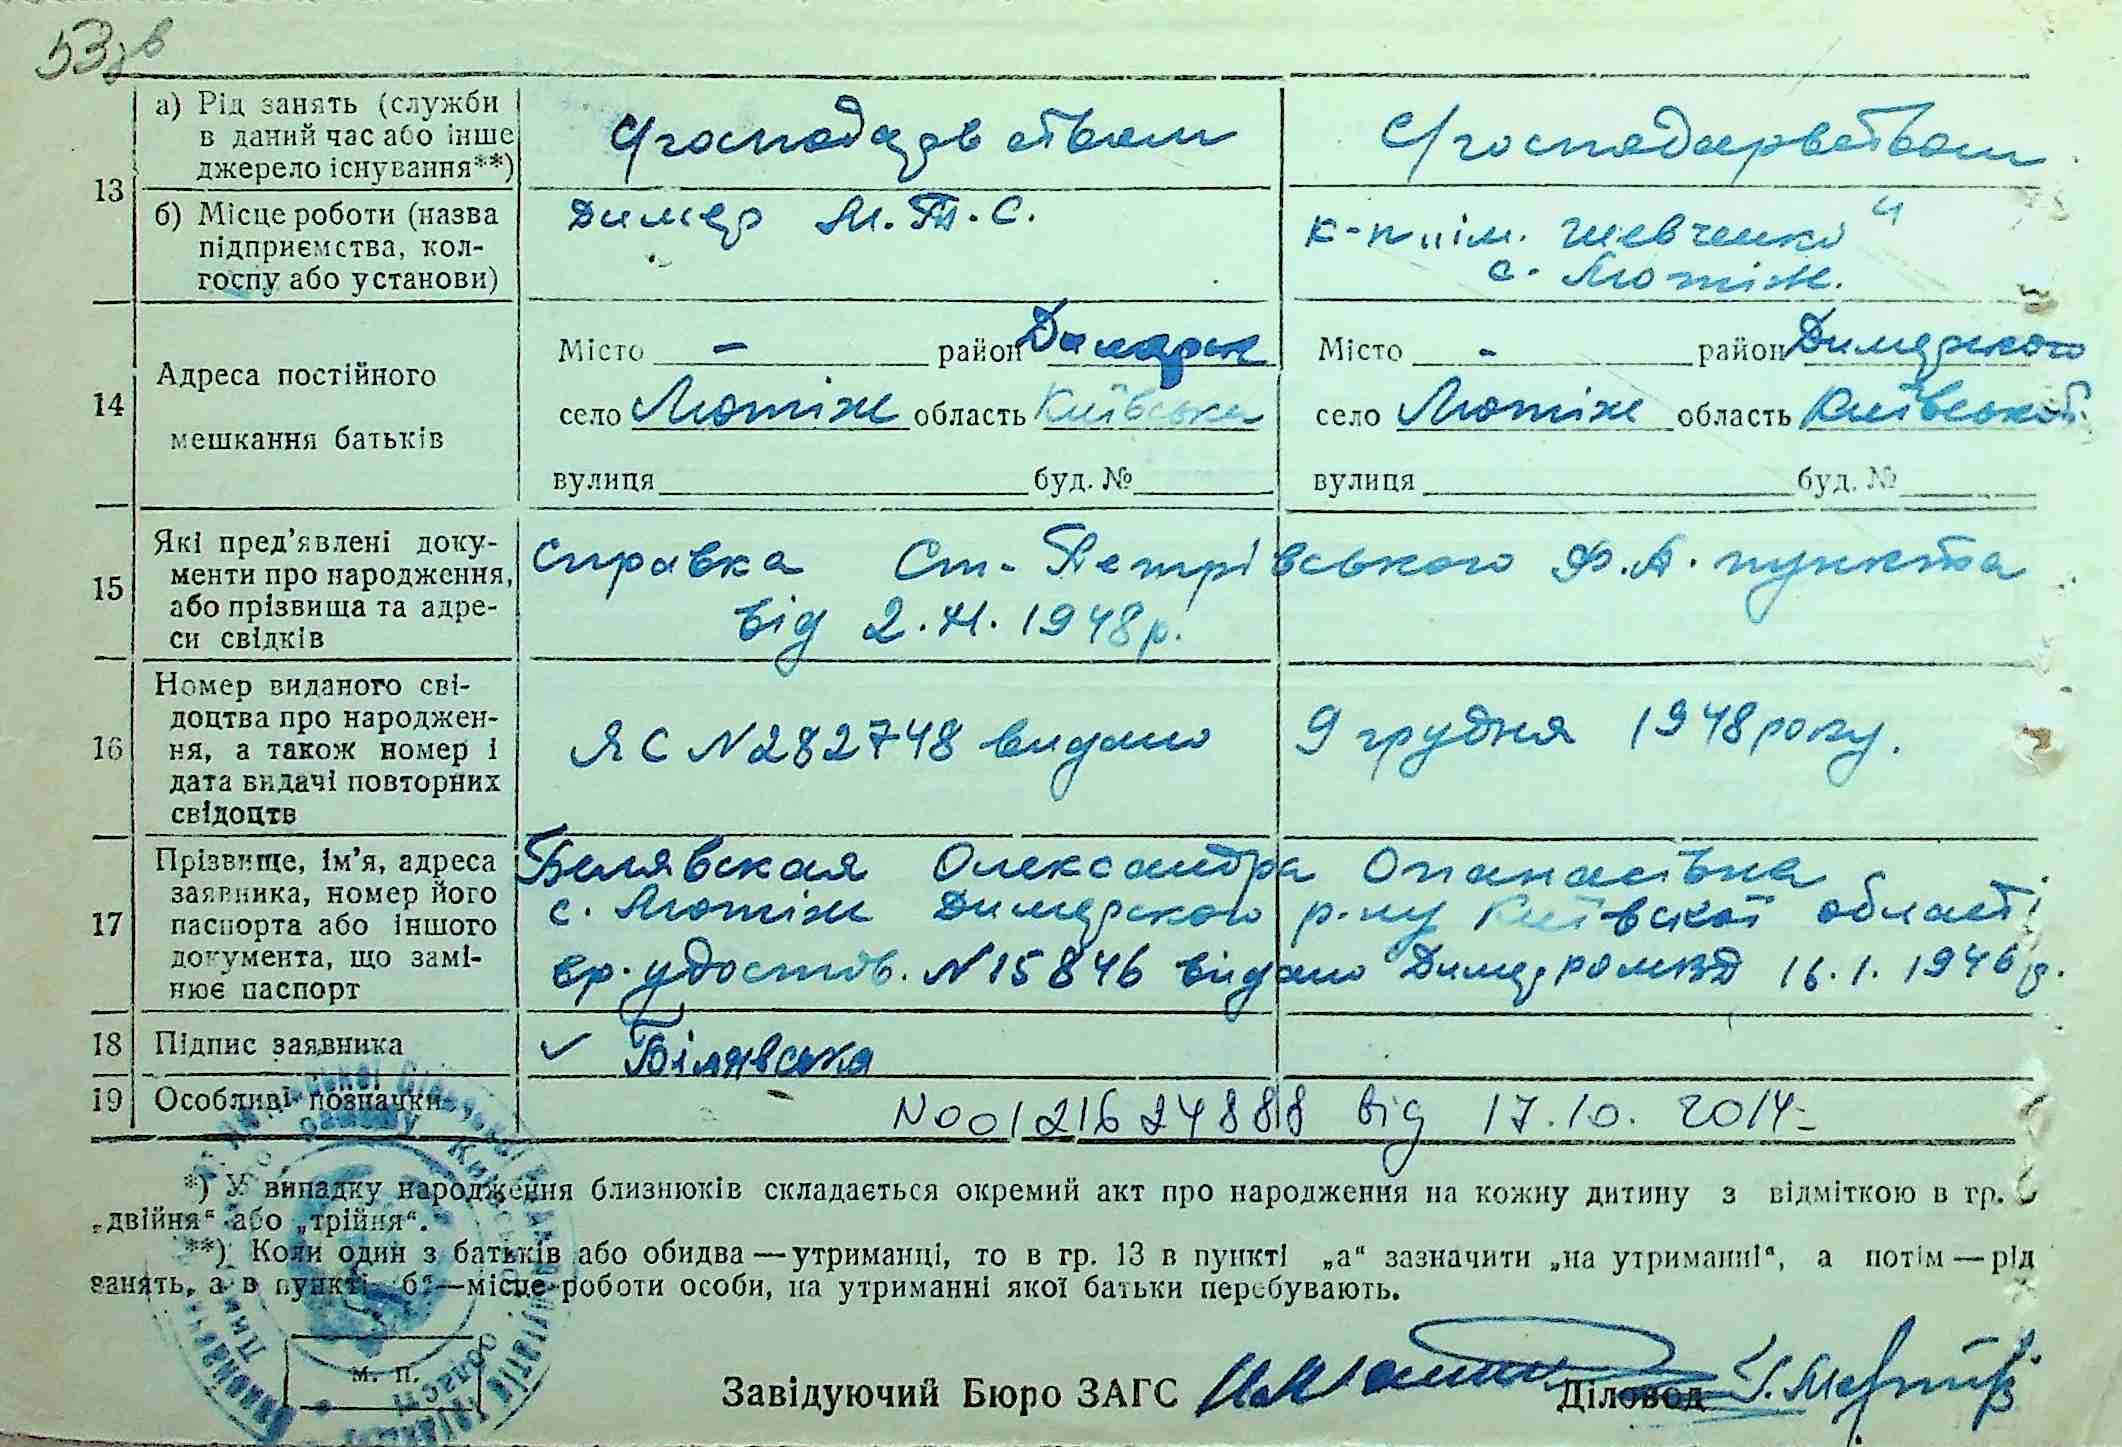 53зв
13
а) Рід занять (служби
в даний час або інше
джерело існування**)
С/господарством
С/господарвством
б) Місце роботи (назва
підприємства, кол-
госпу або установи)
Димер М.Т.С.
к-п „ім. Шевченко"
с. Лютіж.
14
Адреса постійного
мешкання батьків
Місто - район Димерск
село Лютіж область Київська
вулиця буд. №
Місто - район Димерского
село Лютіж область Київської
вулиця буд. №
15
Які пред'явлені доку-
менти про народження,
або прізвища та адре-
си свідків
Справка Ст-Петрівського Ф.А. пункта
від 2.XI.1948р.
16
Номер виданого сві-
доцтва про народжен-
ня, а також номер і
дата видачі повторних
свідоцтв
ЯС N282748 видано 9 грудня 1948 року.
17
Прізвище, ім'я, адреса
заявника, номер його
паспорта або іншого
документа, що замі-
нює паспорт
Белявская Олександра Опанасівна
с. Лютіж Димерского р-ну Київскої області
вр. удостов. N15846 видано Димер 16.1.1946р.
18
Підпис заявника
Білявська
19
Особливі позначки
N00121624888 від 17.10.2014
*) У випадку народження близнюків складається окремий акт про народження на кожну дитину з відміткою в гр.
„двійня" або „трійня".
**) Коли один з батьків або обидва — утриманці, то в гр. 13 в пункті „а" зазначити „на утриманні", а потім — рід
занять, а в пункті б — місце роботи особи, на утриманні якої батьки перебувають.
М. П.
Завідуючий Бюро ЗАГС
Діловод